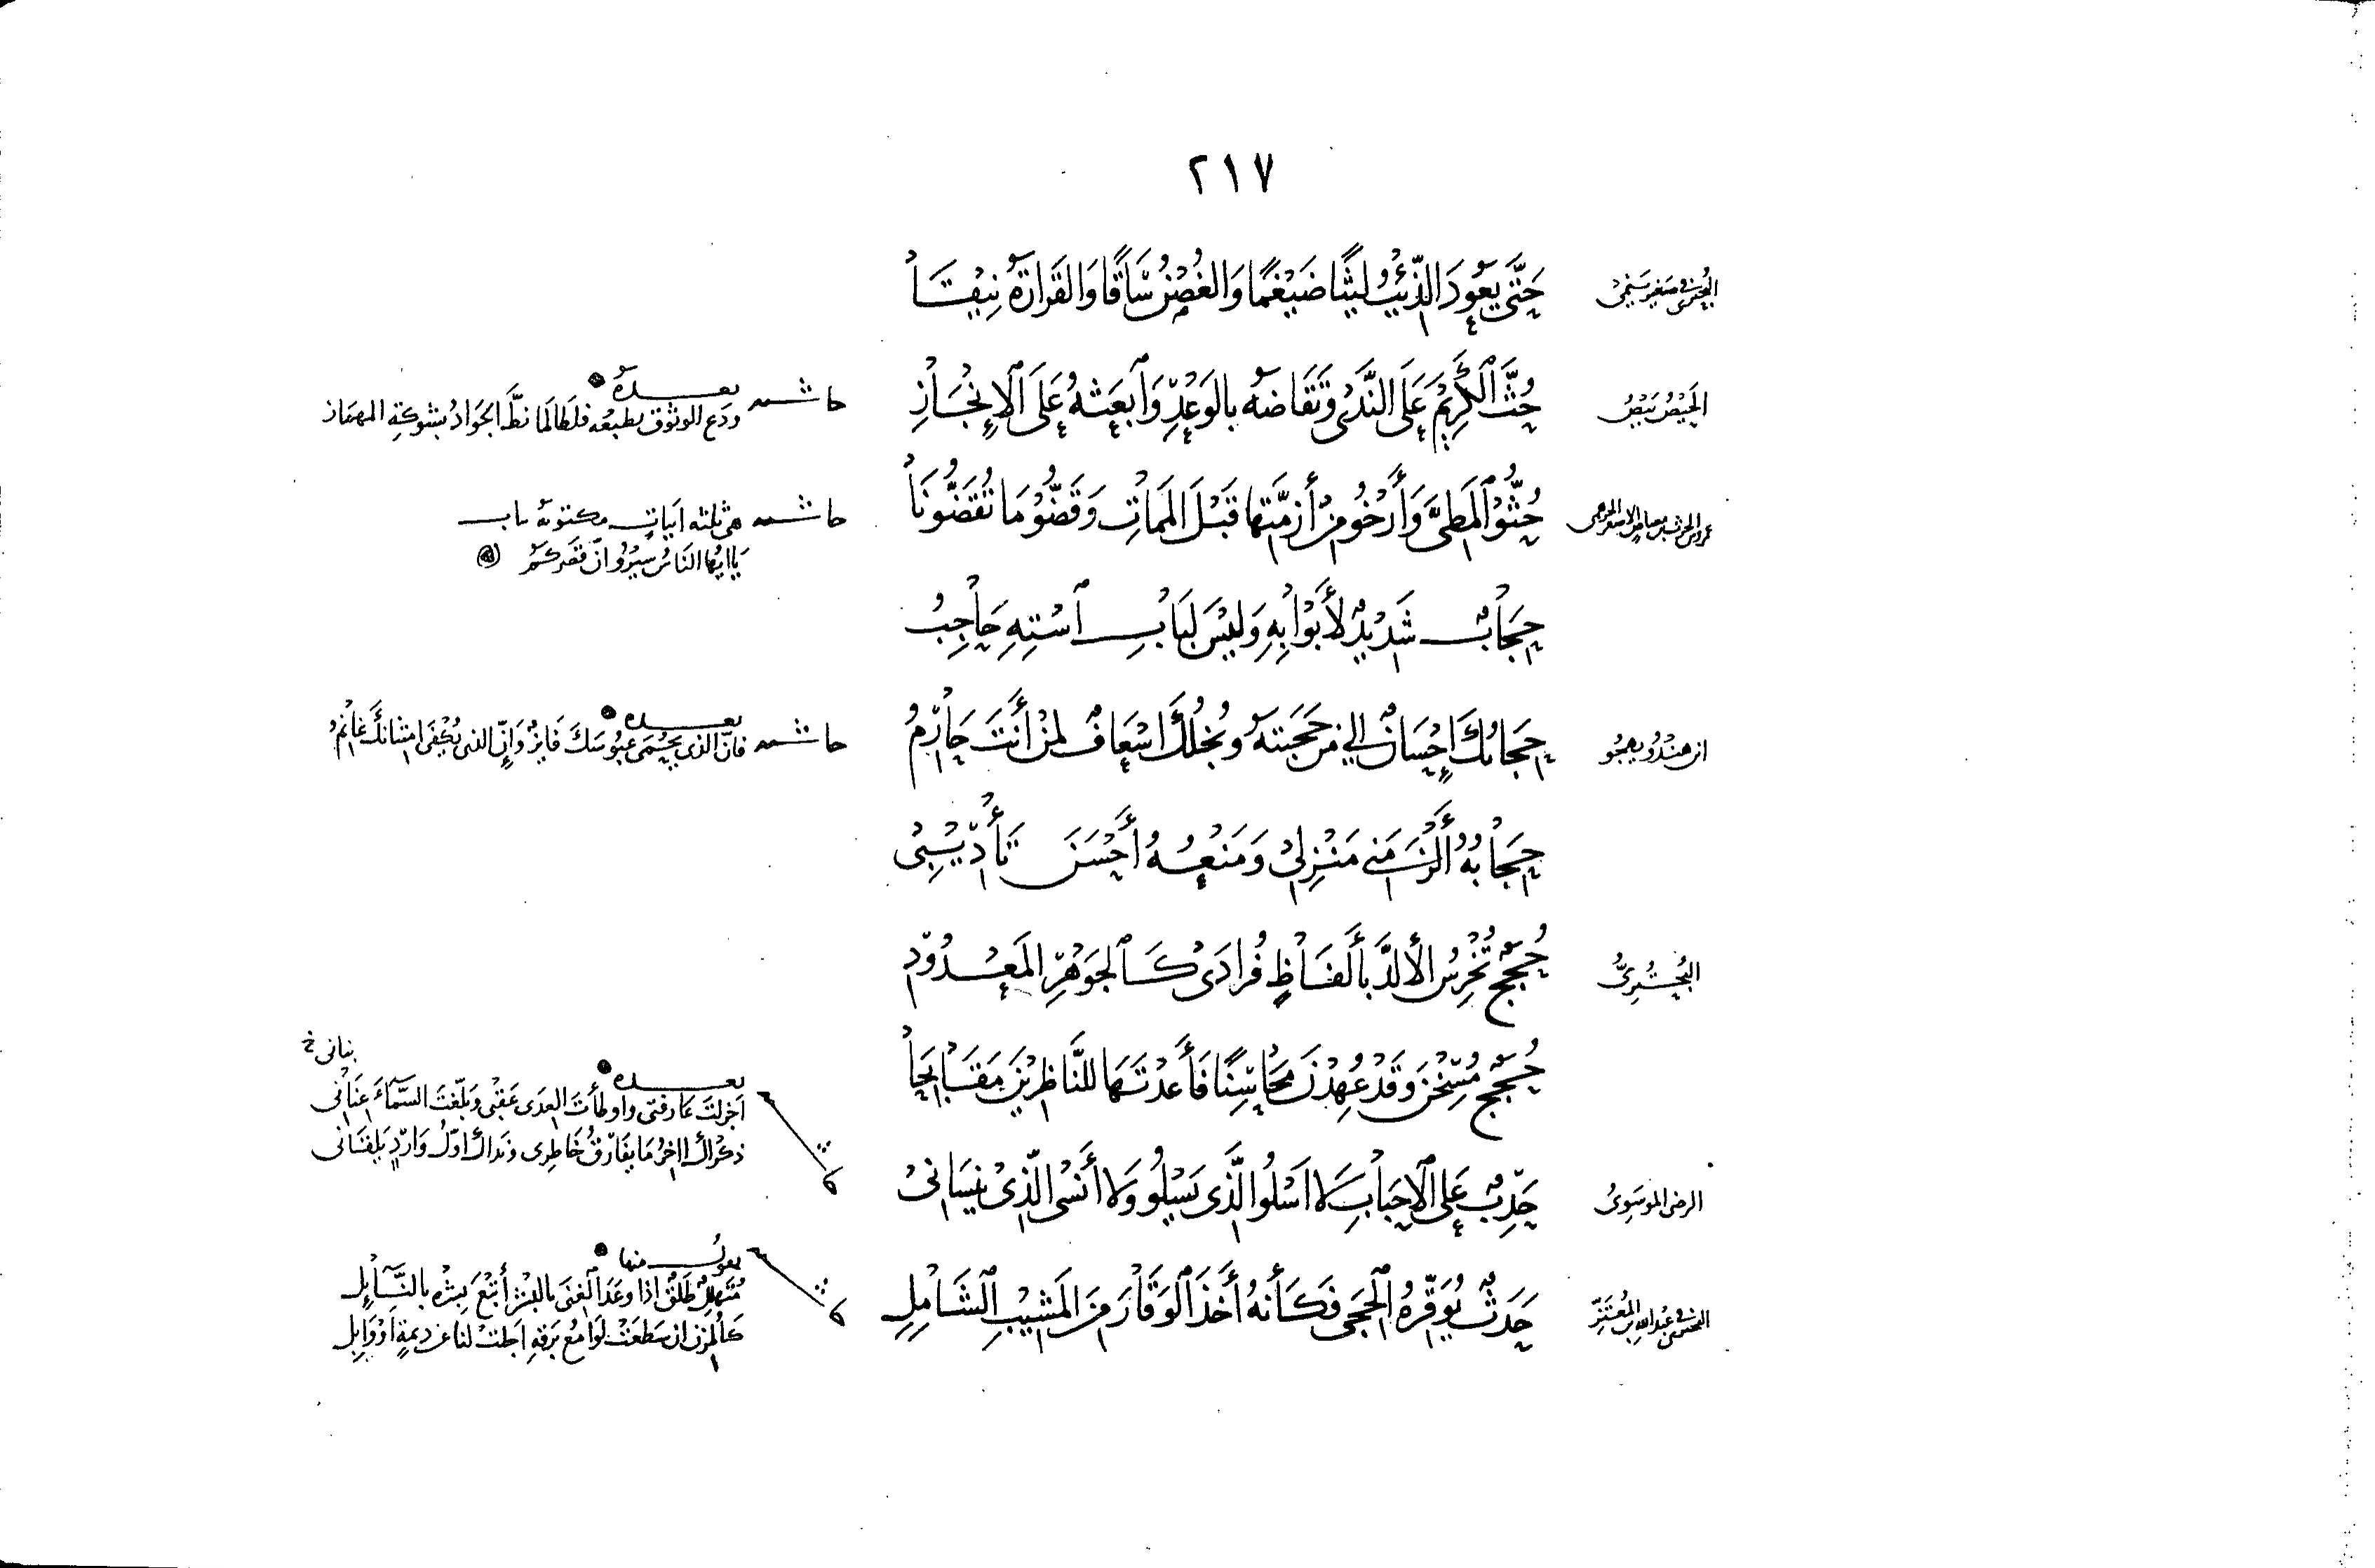 ٢١٧
البحترى فى صغير سيمى
حَتَّى يَعُودَ الذِّئْبُ لَيْثًا ضَيْغَمًا وَالغُصْنُ سَاقًا وَالقَرَارَةُ نِيْقَا
الحَيْصُ بَيْصُ
حُثَّ الكَرِيْمَ عَلَى النَّدَى وَتَقَاضَهُ بالوَعْدِ وَابْعَثْهُ عَلَى الإِنْجَازِ
حاشيه بعده
ودَعِ الوثوقَ بطبعه فلطالما نطَّ الجَوادُ بشوكةِ المهماز
حُثُّوْا المَطِيَّ وَأَرْخُوْا مِنْ أَزِمَّتِهَا قَبْلَ المَمَاتِ وَقَضُّوْا مَا تُقَضُّوْنَا
حاشيه هى ثلثه ابيات مكتوبة باب
يا ايها الناسُ سيروا انّ قصركم
حِجَابٌ شَدِيْدٌ لأَبْوَابِهِ وَلَيْسَ لِبَابِ اسْتِهِ حَاجِبُ
ابن هندُو يهجُو
حِجَابُكَ إِحْسَانٌ الى مَنْ حَجَبْتَهُ وَبُخْلُكَ اسْعَافٌ لِمَنْ أَنْتَ حَارِمُ
حاشيه بعده
فانّ الذى يُحْمَى عبُوسَكَ فَايزٌ وَإِنّ الذى يُكْفَى امتنانكَ غَانِمُ
حِجَابُهُ أَلْزَمَنِى مَنْزِلِى وَمَنْعُهُ أَحْسَنَ تَأْدِيْبِى
البُحْتُرِىُّ
حُجَجٌ تُخْرِسُ الأَلَدَّ بأَلفَاظٍ فُرَادَى كَالجَوْهَرِ المَعْدُوْدِ
حُجَجٌ مُسِخْنَ وَقَدْ عُهِدْنَ مَحَاسِنًا فَأَعَدْتَهَا للنَّاظِرِيْنَ مَقَابِحَا
الرضى الموسَوِىُ
حَدِبٌ عَلَى الاحْبَابِ لا اَسْلُو الَّذِى يَسْلُو وَلا أَنْسَى الَّذِى يَنْسَانِىْ
بعده
اَجْزلتَ عارفتى واوطأتَ العِدَى عَقِبى وبَلَّغتَ السَّمَاءَ عِنَانِى
بنانى خ
ذكْراكَ اخرُ مَا يفَارقُ خَاطِرى ونَداكَ اوّلُ وَاردٍ يَلقَانى
البحترى فى عبد الله بن المُعْتَزِّ
حَدَثٌ يُوَقِّرُهُ الحِجَى فَكَأَنَّهُ أَخَذَ الوَقَارَ مِنَ المَشِيْبِ الشَّامِلِ
يقولُ منها
مُتَهلِّلٌ طَلْقٌ اذا وعَدَ الغِنَى بالبِشْرِ أَتْبَعَ بِشْرَه بالنَّايِلِ
كالمُزْنِ ان سَطعَتْ لَوَامعُ بَرقِهِ اَجلتْ لنا عن ديمةٍ اوْ وَابِلِ